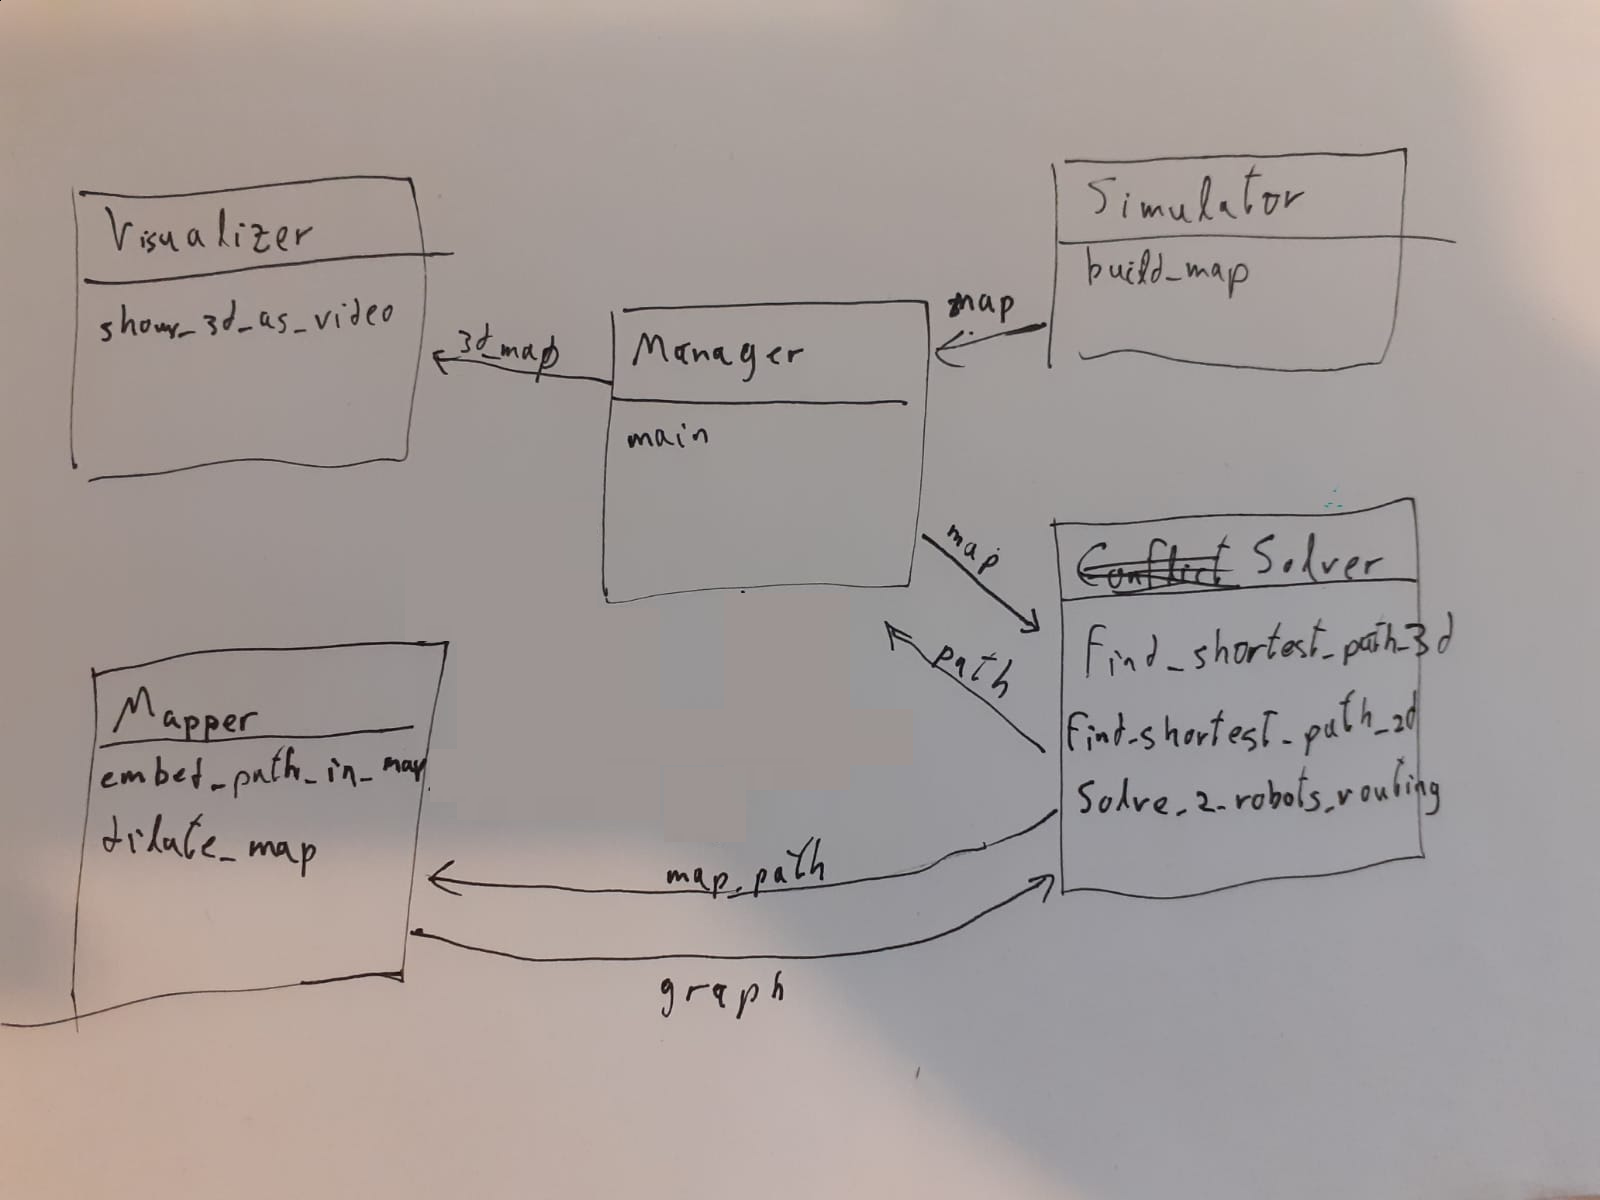 Visualizer
show_3d_as_video
3d_map
Manager
main
map
Simulator
build_map
map
path
Conflict Solver
find_shortest_path_3d
find_shortest_path_2d
solve_2_robots_routing
Mapper
embed_path_in_map
dilate_map
map, path
graph